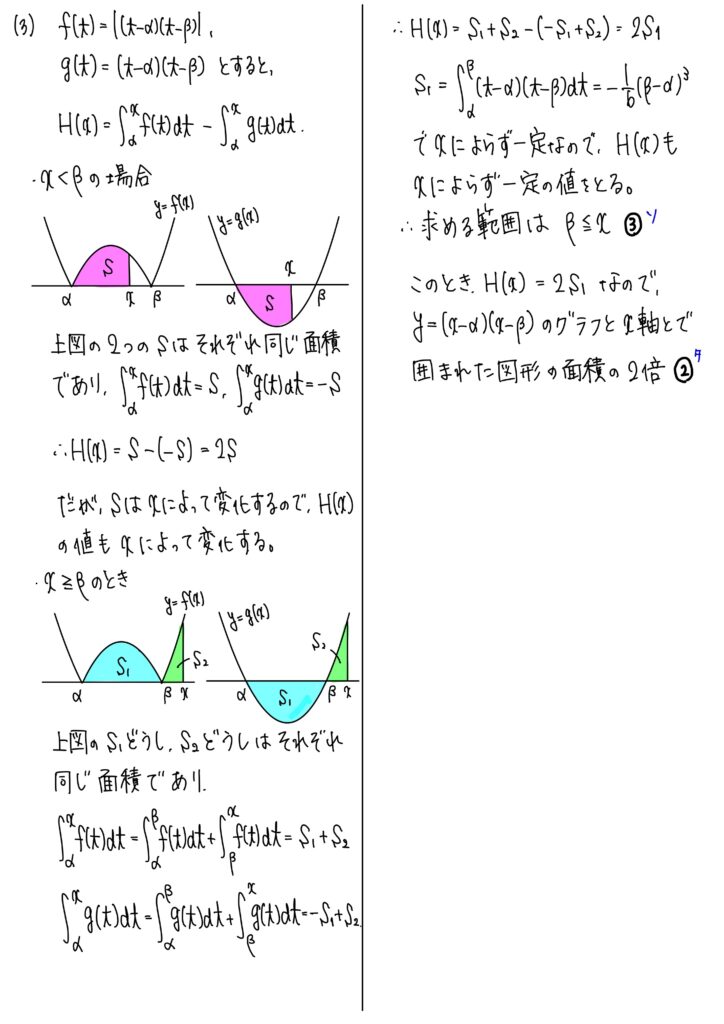 (3) f(t) = |(t-α)(t-β)|,
g(t) = (t-α)(t-β) とすると,
H(x) = ∫_α^x f(t)dt - ∫_α^x g(t)dt.
・x<βの場合
y=f(x)
S
α x β
y=g(x)
x
α S β
上図の2つのSはそれぞれ同じ面積
であり, ∫_α^x f(t)dt=S, ∫_α^x g(t)dt=-S
∴H(x) = S-(-S) = 2S
だが, Sはxによって変化するので, H(x)
の値もxによって変化する。
・x≧βのとき
y=f(x)
S₁ S₂
α β x
y=g(x)
S₂
α S₁ β x
上図のS₁どうし, S₂どうしはそれぞれ
同じ面積であり.
∫_α^x f(t)dt=∫_α^β f(t)dt+∫_β^x f(t)dt= S₁+S₂
∫_α^x g(t)dt=∫_α^β g(t)dt+∫_β^x g(t)dt=-S₁+S₂.
∴H(x) = S₁+S₂-(-S₁+S₂) = 2S₁
S₁ = ∫_α^β (t-α)(t-β)dt = -1/6(β-α)³
でxによらず一定なので, H(x)も
xによらず一定の値をとる。
∴求める範囲は β≦x ③ ソ
このとき, H(x) = 2S₁ なので,
y=(x-α)(x-β)のグラフとx軸とで
囲まれた図形の面積の2倍 ② タ